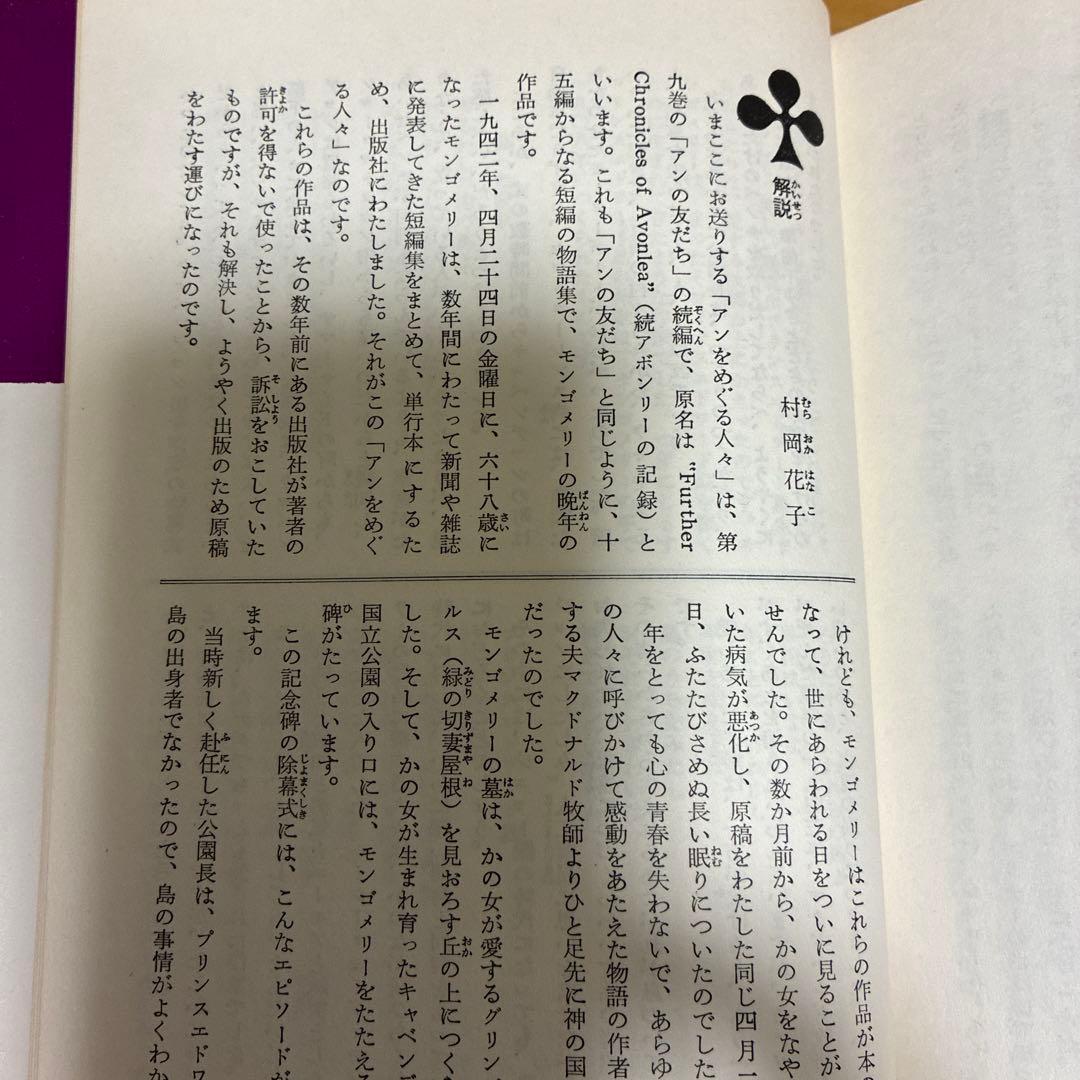 解説
村岡花子
いまここにお送りする「アンをめぐる人々」は、第
九巻の「アンの友だち」の続編で、原名は “Further
Chronicles of Avonlea”（続アボンリーの記録）と
いいます。これも「アンの友だち」と同じように、十
五編からなる短編の物語集で、モンゴメリーの晩年の
作品です。
一九四二年、四月二十四日の金曜日に、六十八歳に
なったモンゴメリーは、数年間にわたって新聞や雑誌
に発表してきた短編集をまとめて、単行本にするた
め、出版社にわたしました。それがこの「アンをめぐ
る人々」なのです。
これらの作品は、その数年前にある出版社が著者の
許可を得ないで使ったことから、訴訟をおこしていた
ものですが、それも解決し、ようやく出版のため原稿
をわたす運びになったのです。
けれども、モンゴメリーはこれらの作品が本
なって、世にあらわれる日をついに見ることが
せんでした。その数か月前から、かの女をなや
いた病気が悪化し、原稿をわたした同じ四月
日、ふたたびさめぬ長い眠りについたのでした
年をとっても心の青春を失わないで、あらゆ
の人々に呼びかけて感動をあたえた物語の作者
する夫マクドナルド牧師よりひと足先に神の国
だったのでした。
モンゴメリーの墓は、かの女が愛するグリン
ルス（緑の切妻屋根）を見おろす丘の上につく
した。そして、かの女が生まれ育ったキャベン
国立公園の入り口には、モンゴメリーをたたえる
碑がたっています。
この記念碑の除幕式には、こんなエピソードが
ます。
当時新しく赴任した公園長は、プリンスエドワ
島の出身者でなかったので、島の事情がよくわか